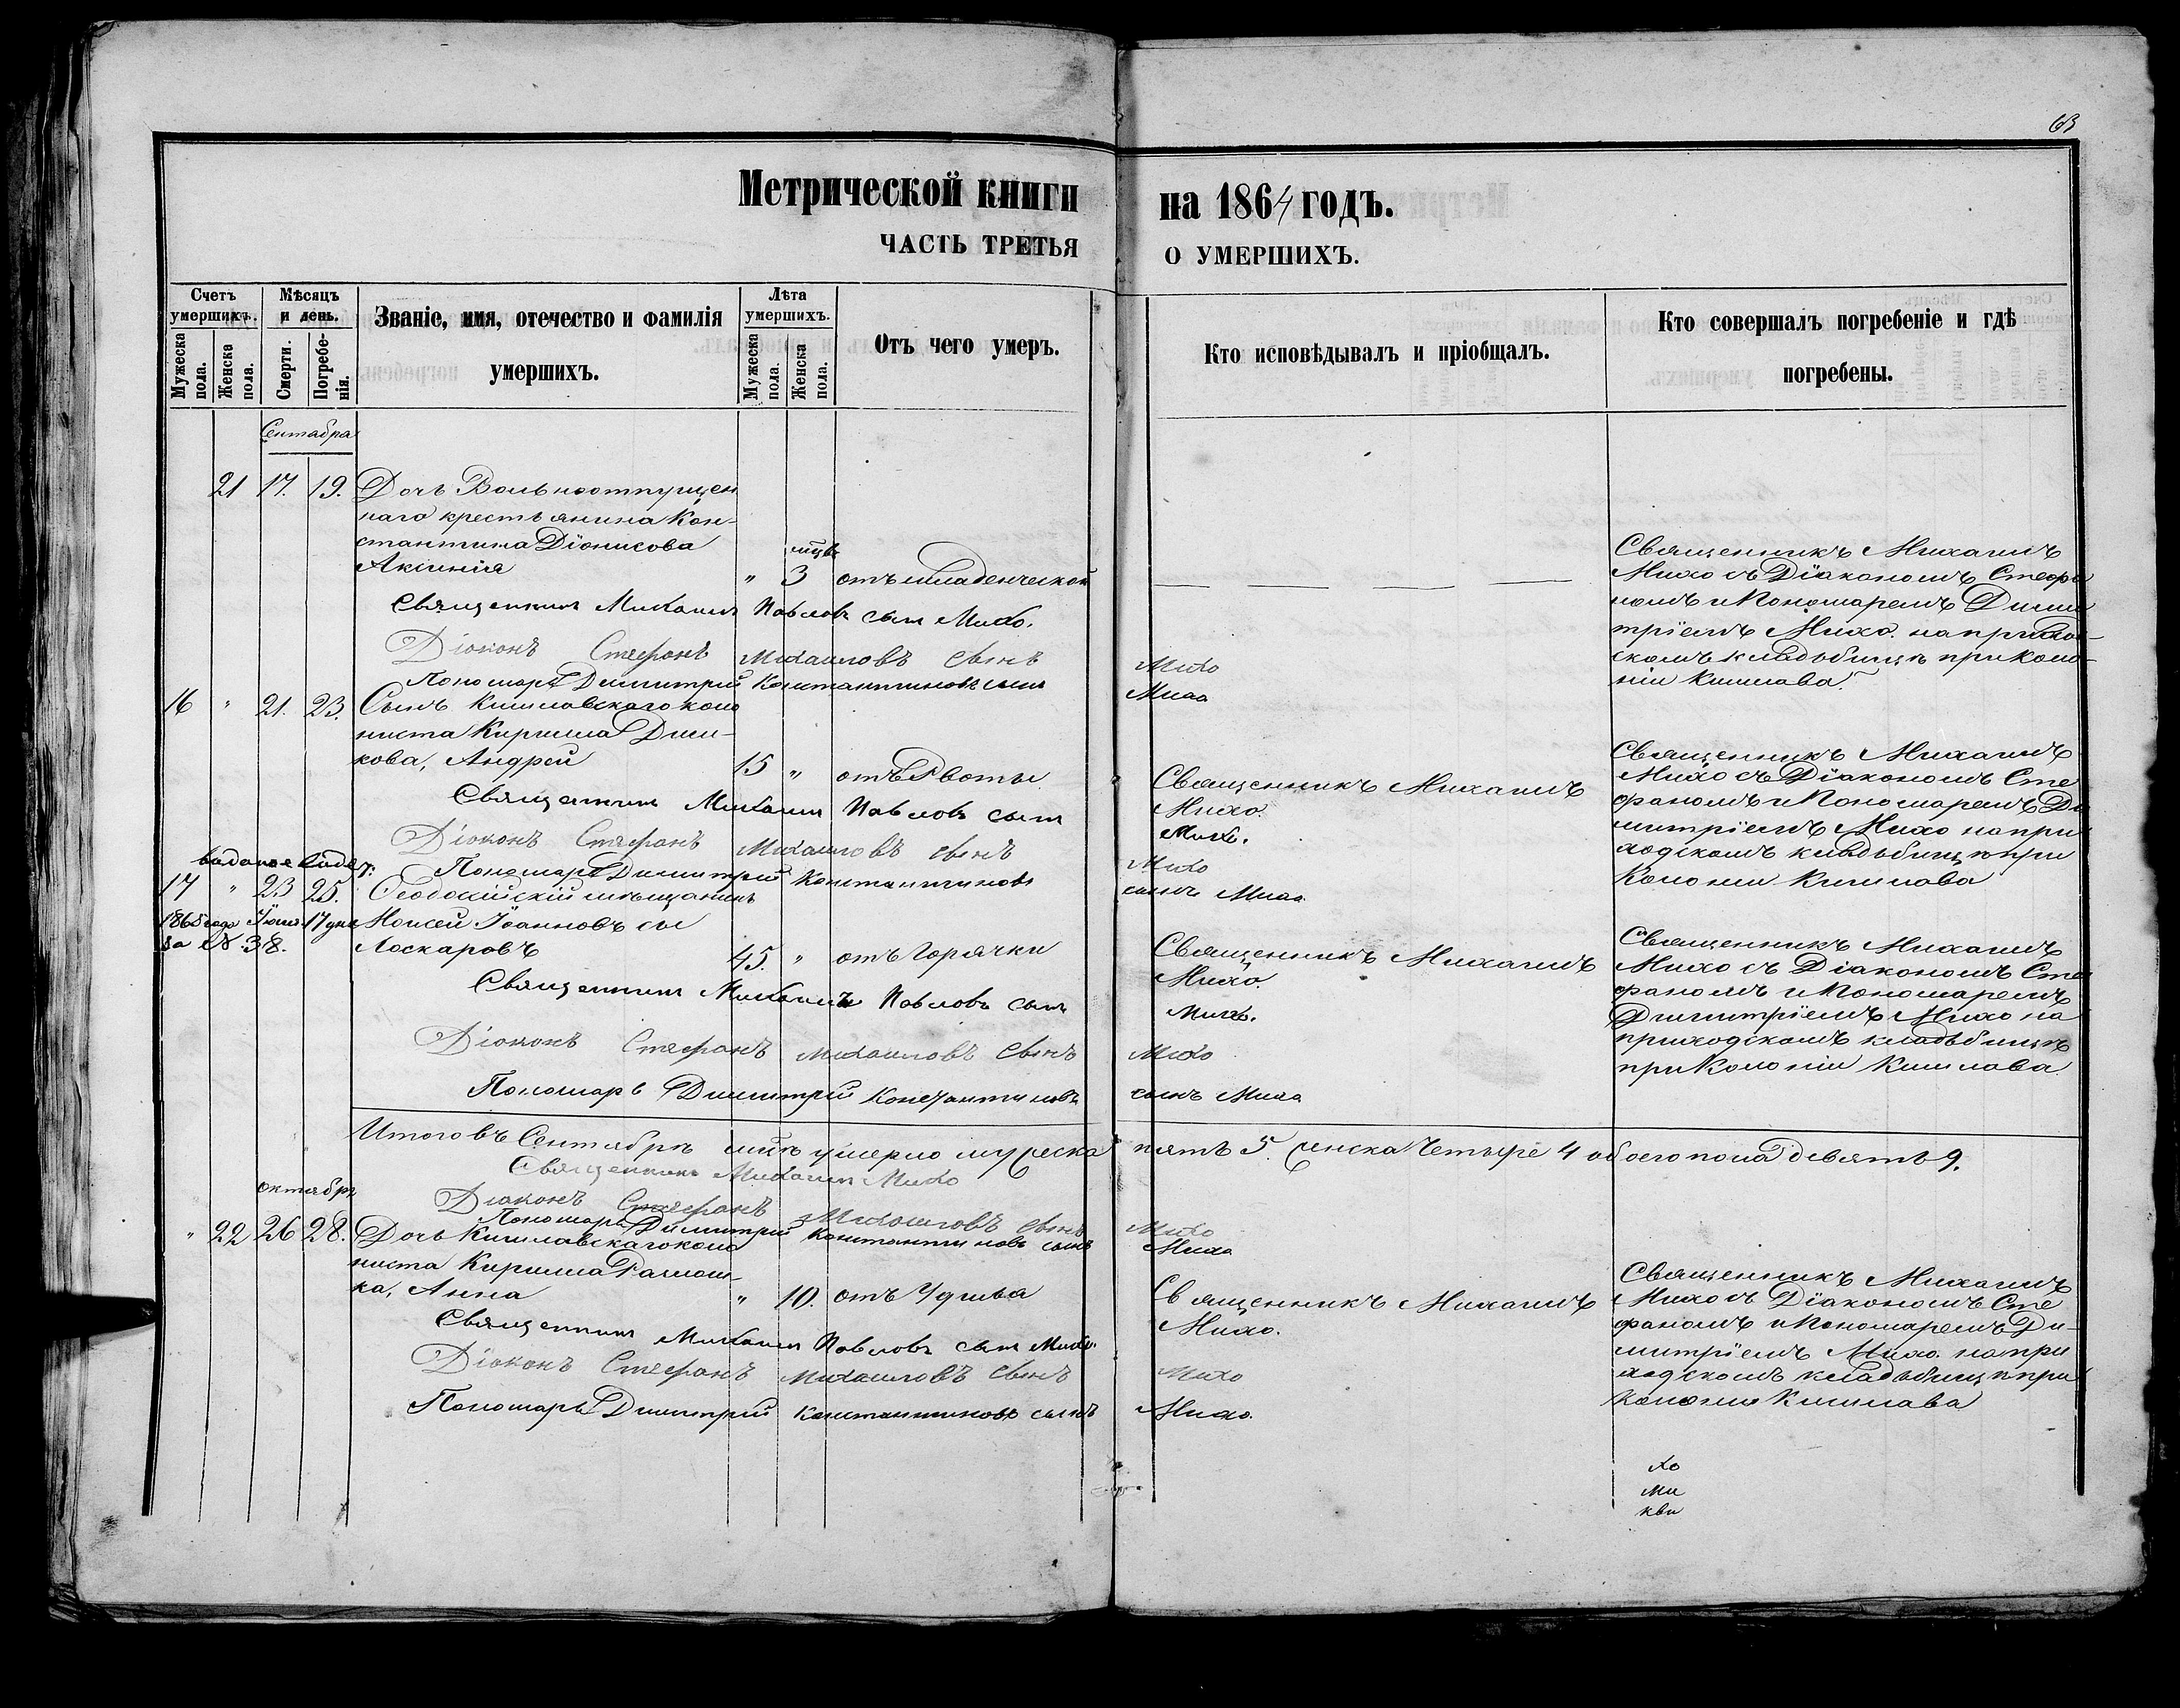 63
Метрической книги на 1864 годъ.
ЧАСТЬ ТРЕТЬЯ О УМЕРШИХЪ.
Счетъ умершихъ.
Мужеска пола.
Женска пола.
Мѣсяцъ и день.
Смерти.
Погребенія.
Званіе, имя, отечество и фамилія умершихъ.
Лѣта умершихъ.
Мужеска пола.
Женска пола.
Отъ чего умеръ.
Кто исповѣдывалъ и пріобщалъ.
Кто совершалъ погребеніе и гдѣ погребены.
Сентабра
21 17. 19. Дочь Вольноотпущен
наго крестьянина Кон-
стантина Діонисова
Акилнія " 3 отъ младенческой
Священникъ Михаилъ
Михо съ Діакономъ Стефа
номъ и Пономаремъ Дими
тріемъ Михо. на приход-
скомъ кладьбищѣ при Коло-
ніи Кишлава.
Священникъ Михаилъ Павловъ сынъ Михо.
Діоконъ Стефанъ Михаиловъ сынъ Михо
Пономарь Димитрій Константиновъ сынъ Михо
16 " 21. 23. Сынъ Кишлавскаго коло
ниста Кирилла Дим-
кова, Андрей 15 " отъ Рвоты.
Священникъ Михаилъ
Михо.
Священникъ Михаилъ
Михо съ Діакономъ Сте
фаномъ и Пономаремъ Ди
митріемъ Михо на при
ходскомъ кладьбищѣ при
Колоніи Кишлава
Священникъ Михаилъ Павловъ сынъ Михо.
Діоконъ Стефанъ Михаиловъ сынъ Михо
Пономарь Димитрій Константиновъ сынъ Михо
17 " 23 25. Ѳеодосійскій мѣщанинъ
1865 года Іюня 17 дня Моисей Іоанновъ сы
за № 38. Лоскаровъ 45. " отъ Горячки
Священникъ Михаилъ
Михо.
Священникъ Михаилъ
Михо съ Діакономъ Сте
фаномъ и Пономаремъ
Димитріемъ Михо на
приходскомъ кладьбищѣ
при Колоніи Кишлава
Священникъ Михаилъ Павловъ сынъ Михо.
Діоконъ Стефанъ Михаиловъ сынъ Михо
Пономарь Димитрій Константиновъ сынъ Михо
Итого въ Сентябрѣ умерло мужеска пять 5. женска Четыре 4 обоего пола девять 9.
Священникъ Михаилъ Михо
Діаконъ Стефанъ Михаиловъ сынъ Михо
Пономарь Димитрій Константиновъ сынъ Михо
октябрь
" 22 26 28. Дочь Кишлавскаго коло
ниста Кирилла
ка, Анна " 10. отъ
Священникъ Михаилъ
Михо.
Священникъ Михаилъ
Михо съ Діакономъ Сте
фаномъ и Пономаремъ Ди-
митріемъ Михо. на при
ходскомъ кладьбищѣ при
Колоніи Кишлава
Священникъ Михаилъ Павловъ сынъ Михо.
Діоконъ Стефанъ Михаиловъ сынъ Михо
Пономарь Димитрій Константиновъ сынъ Михо.
хо
ми
кви